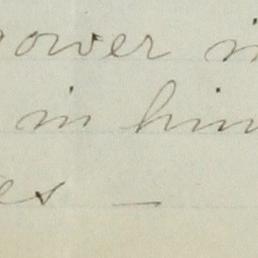 power in
in him
es —